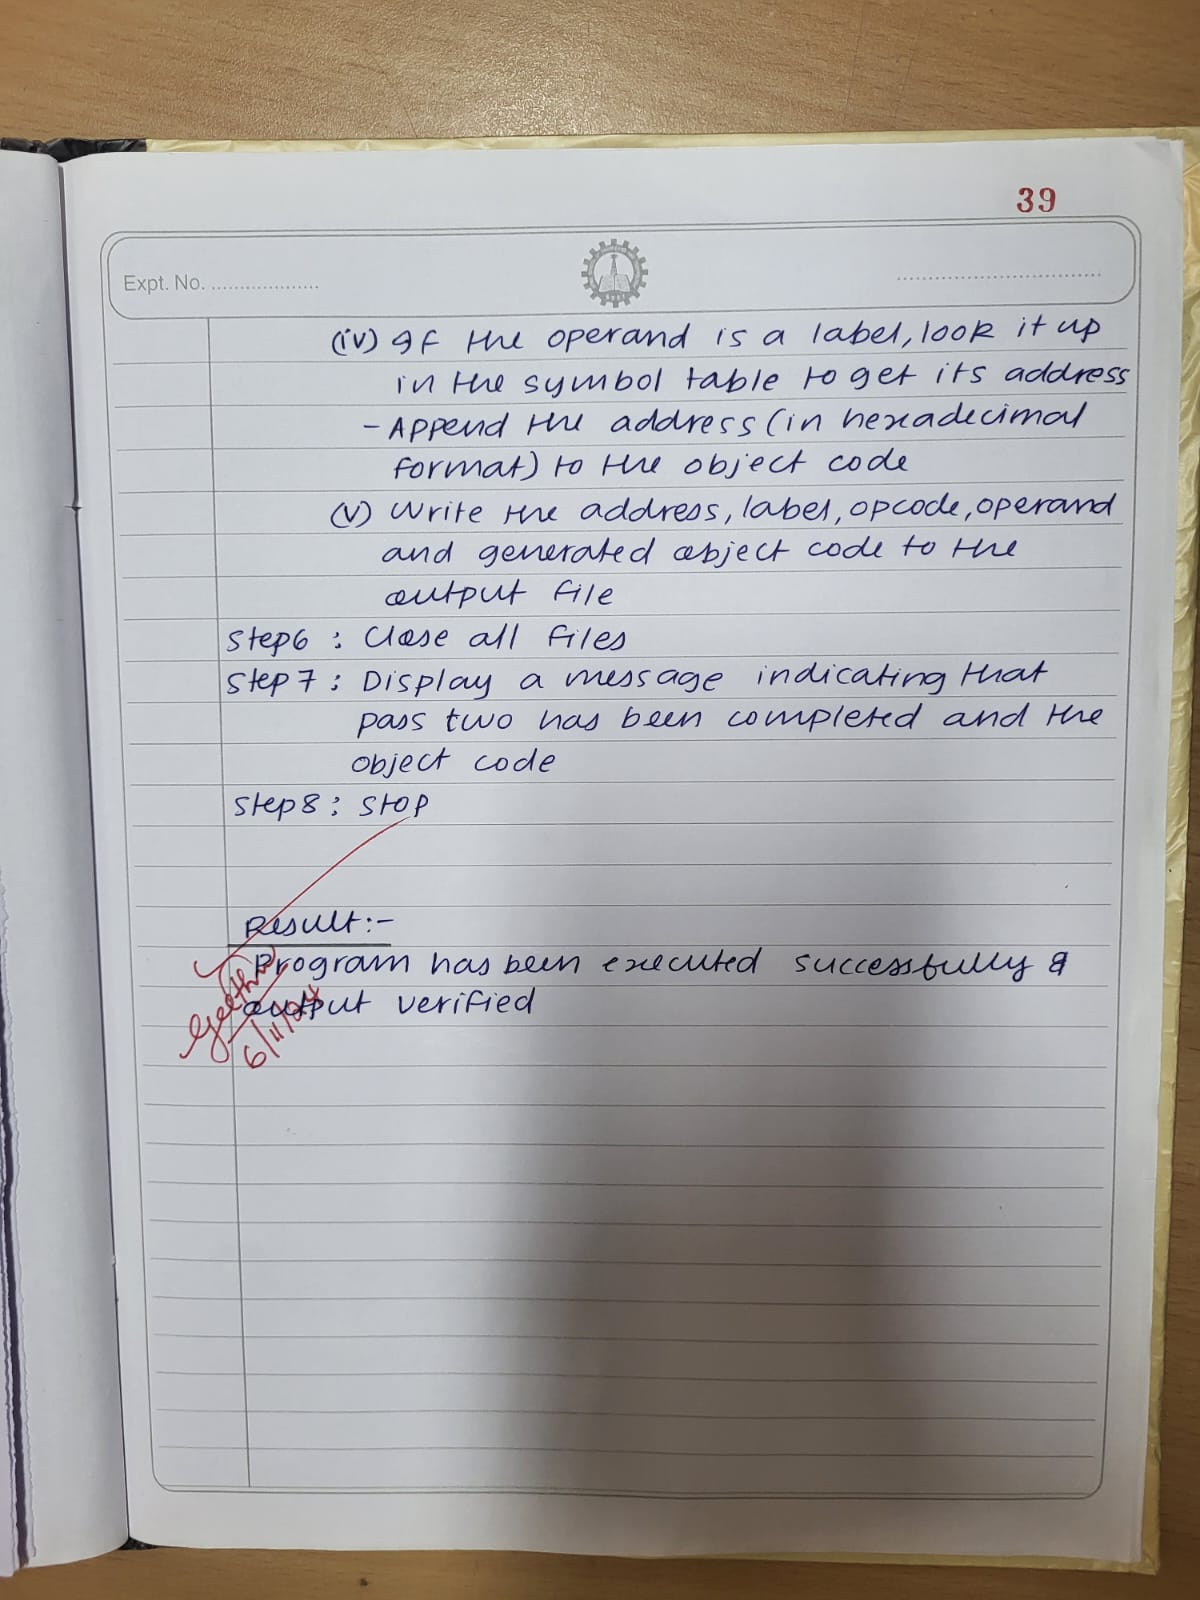 39
Expt. No. ...................
(iv) If the operand is a label, look it up
in the symbol table to get its address
- Append the address (in hexadecimal
format) to the object code
(v) Write the address, label, opcode, operand
and generated object code to the
output file
Step6 : Close all files
Step7 : Display a message indicating that
pass two has been completed and the
object code
Step8 : Stop
Result:-
Program has been executed successfully &
output verified
6/11/24